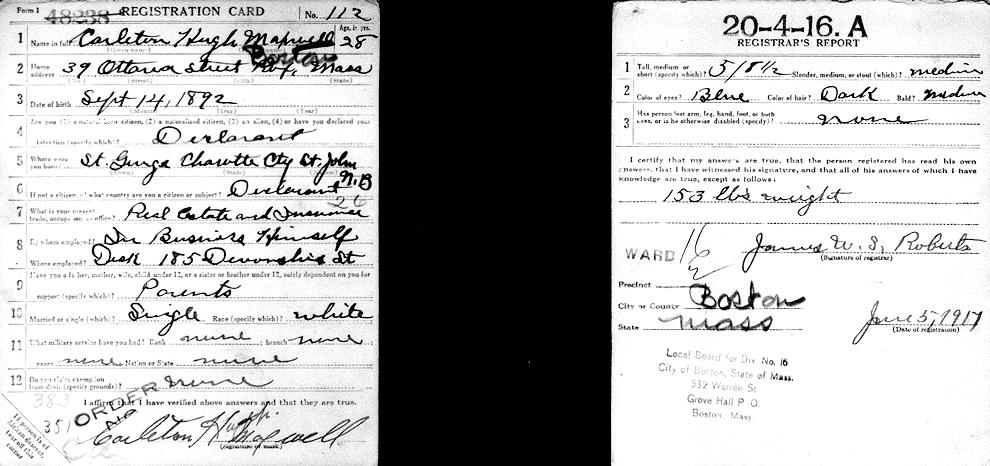 Form 1 48238 REGISTRATION CARD No. 112
1 Name in full Carleton Hugh Maxwell Age, in yrs. 28
(Given name) (Family name)
2 Home address 39 Ottawa Street Rox, Boston Mass
(Street) (City) (State)
3 Date of birth Sept 14, 1892
(Month) (Day) (Year)
4 Are you (1) a natural-born citizen, (2) a naturalized citizen, (3) an alien, (4) or have you declared your
intention (specify which)? Declarant
5 Where were you born? St. George Charlotte Cty St. John N.B
(Town) (State)
6 If not a citizen, of what country are you a citizen or subject? Declarant
26
7 What is your present trade, occupation, or office? Real Estate and Insurance
8 By whom employed? In Business Himself
Where employed? Desk 185 Devonshire St
9 Have you a father, mother, wife, child under 12, or a sister or brother under 12, solely dependent on you for
support (specify which)? Parents
10 Married or single (which)? Single Race (specify which)? white
11 What military service have you had? Rank none ; branch none ;
years none Nation or State none
12 Do you claim exemption from draft (specify grounds)? none
383 I affirm that I have verified above answers and that they are true.
351 ORDER NO
Carleton H Maxwell
(Signature or mark)
If person is of African descent, tear off this corner
20-4-16. A
REGISTRAR'S REPORT
1 Tall, medium or short (specify which)? 5/8 1/2 Slender, medium, or stout (which)? medium
2 Color of eyes? Blue Color of hair? Dark Bald? medium
3 Has person lost arm, leg, hand, foot, or both eyes, or is he otherwise disabled (specify)? none
I certify that my answers are true, that the person registered has read his own
answers, that I have witnessed his signature, and that all of his answers of which I have
knowledge are true, except as follows:
153 lbs weight
WARD 16
James W. S. Roberts
(Signature of registrar)
Precinct 2
City or County Boston
State Mass
June 5, 1917
(Date of registration)
Local Board for Div. No. 16
City of Boston, State of Mass.
532 Warren St
Grove Hall P O
Boston Mass.